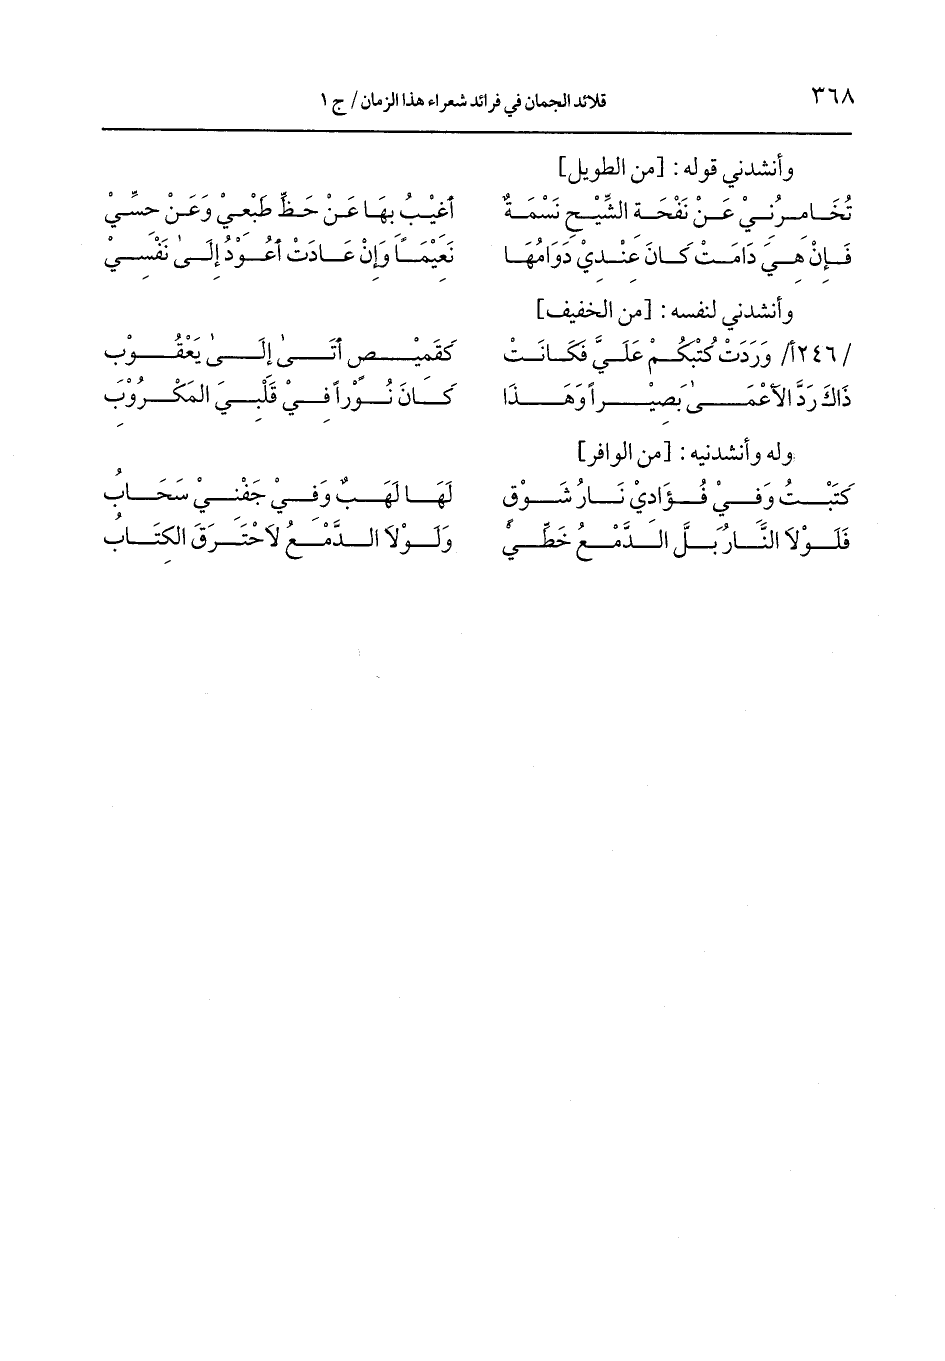 ٣٦٨ قلائد الجمان في فرائد شعراء هذا الزمان / ج ١
وأنشدني قوله : [من الطويل]
تُخَامِرُنِيْ عَنْ نَفْحَةِ الشِّيْحِ نَسْمَةٌ أَغِيْبُ بِهَا عَنْ حَظِّ طَبْعِيْ وَعَنْ حِسِّيْ
فَإِنْ هِيَ دَامَتْ كَانَ عِنْدِيْ دَوَامُهَا نَعِيْمَاً وَإِنْ عَادَتْ أَعُوْدُ إِلَىٰ نَفْسِيْ
وأنشدني لنفسه : [من الخفيف]
/ ٢٤٦أ/ وَرَدَتْ كُتْبُكُمْ عَلَيَّ فَكَانَتْ كَقَمِيْصٍ أَتَىٰ إِلَىٰ يَعْقُوْبِ
ذَاكَ رَدَّ الأَعْمَىٰ بَصِيْراً وَهَذَا كَانَ نُوْراً فِيْ قَلْبِيَ المَكْرُوْبِ
وله وأنشدنيه : [من الوافر]
كَتَبْتُ وَفِيْ فُؤَادِيْ نَارُ شَوْقٍ لَهَا لَهَبٌ وَفِيْ جَفْنِيْ سَحَابُ
فَلَوْلاَ النَّارُ بَلَّ الدَّمْعُ خَطِّيْ وَلَوْلاَ الدَّمْعُ لاَحْتَرَقَ الكِتَابُ